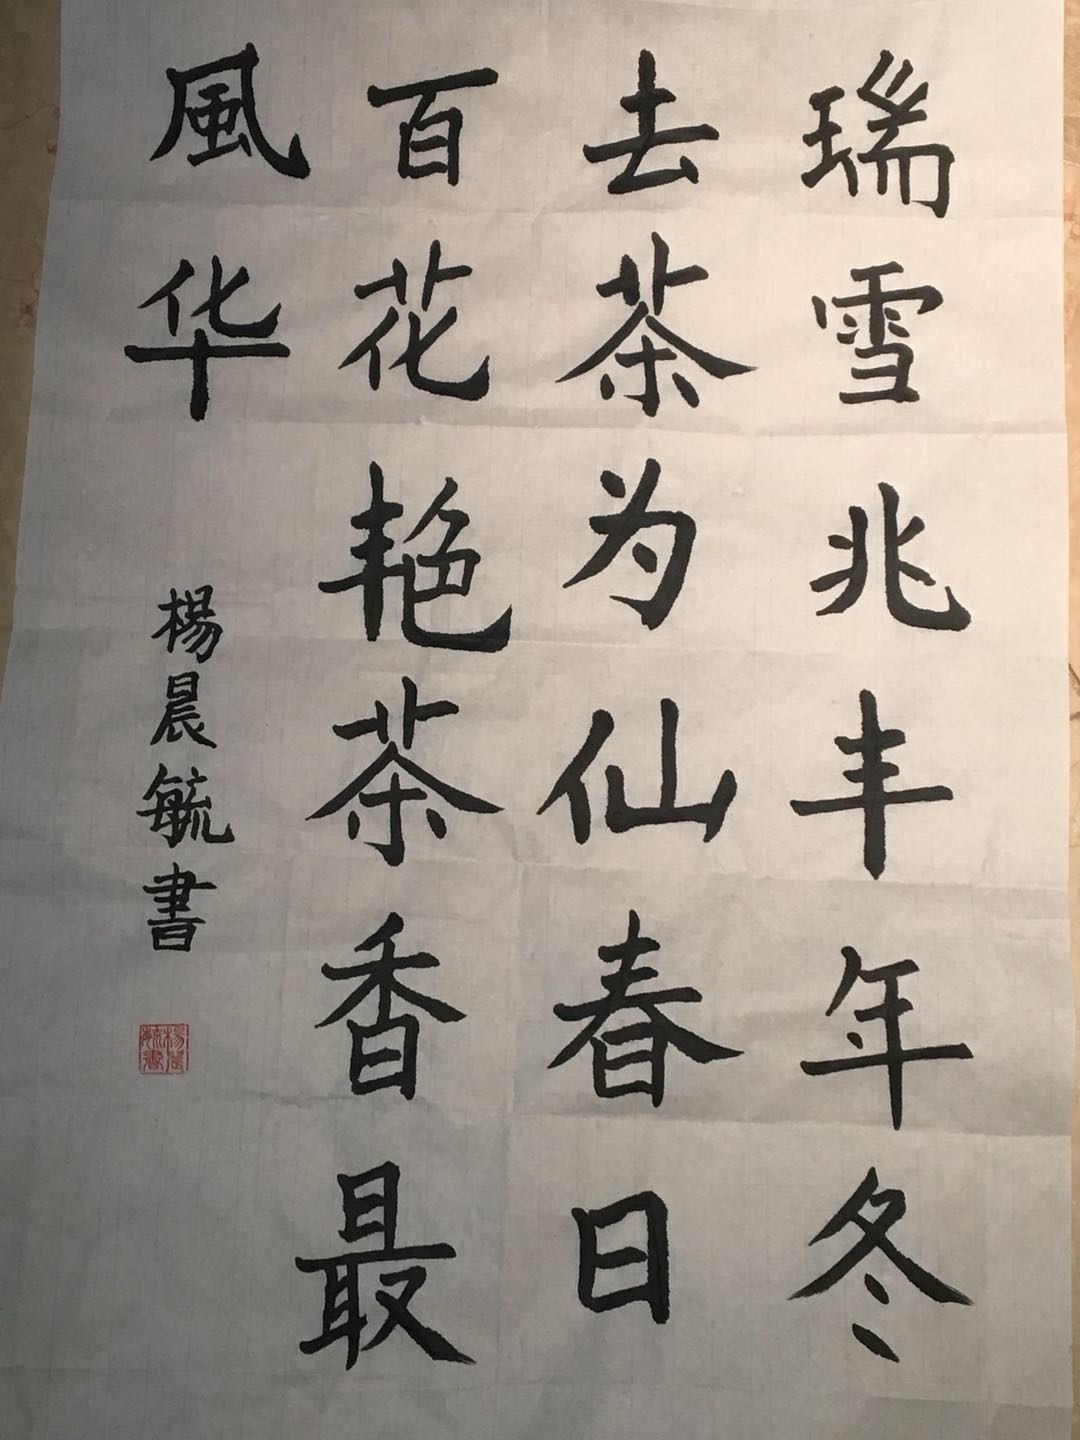 瑞雪兆丰年冬
去茶为仙春日
百花艳茶香最
風华
楊晨毓書
楊晨毓書